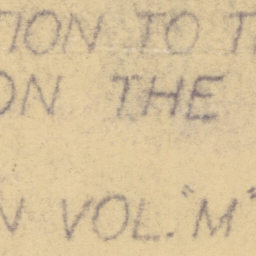 TION TO T
ON THE
N VOL. "M"